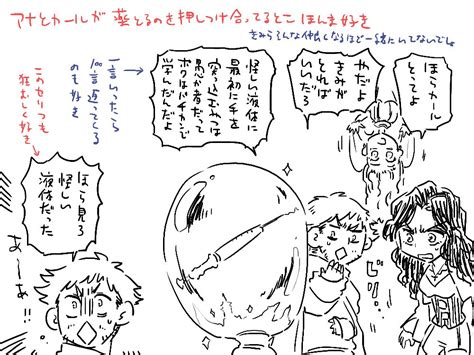 アナとカールが薬とるのを押しつけ合ってるとこほんま好き
きみらそんな仲良くなるほど一緒にいてないでしょ
ほらカール
とってよ
やだよ
きみが
とれば
いいだろ
怪しい液体に
最初に手を
突っ込むやつは
愚か者だって
ボクはバチカンで
学んだんだよ
一言いったら
100言返ってくる
のも好き
このセリフも
狂おしく好き
ほら見ろ
怪しい
液体だった
あーあ!!
ジリ…